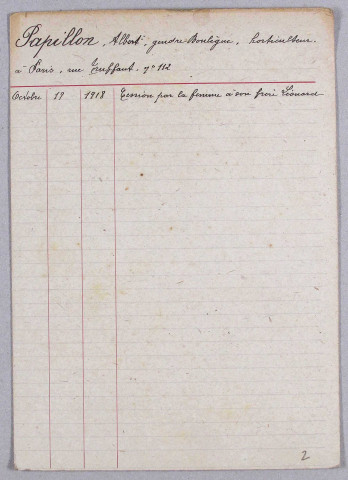 Papillon, Albert, gendre Boulègue, horticulteur
à Paris, rue n° 112
Octobre 19 1918 Cession par la femme à son frère Léonard
2